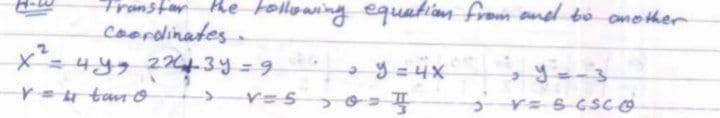 H-W Transfer the following equation from and to another
Coordinates.
x² = 4y, 2x+3y = 9 , y = 4x , y = -3
r = 4 tan θ , r = 5 , θ = π/3 , r = 5 csc θ